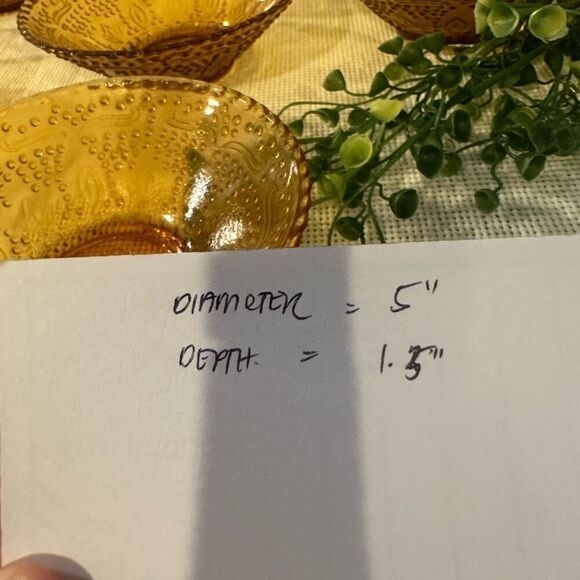 DIAMETER = 5"
DEPTH. = 1.5"